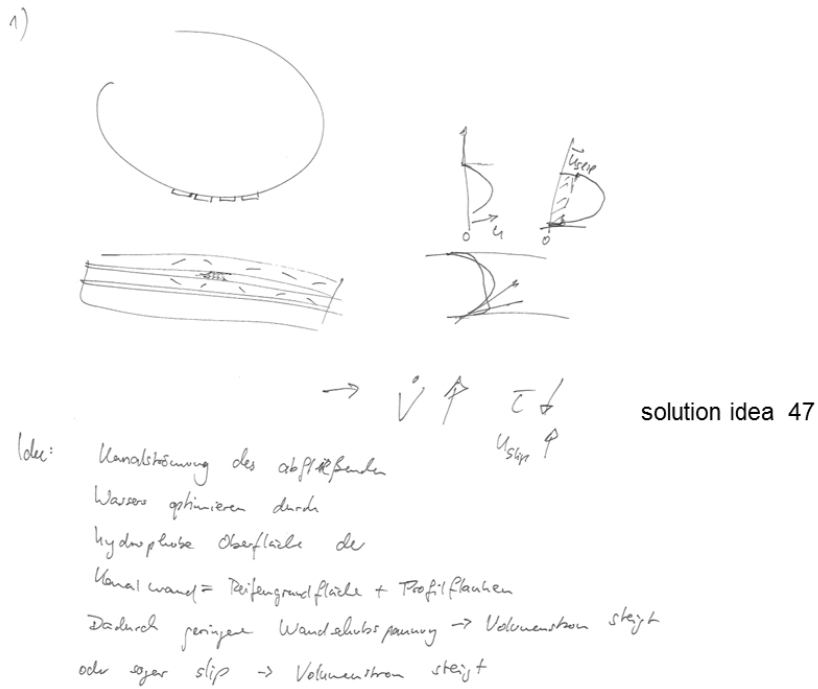 1)
u_slip
0
u
0
→ V̇ ↑ τ ↓
u_slip ↑
solution idea 47
Idee: Kanalströmung des abfließenden
Wassers optimieren durch
hydrophobe Oberfläche der
Kanalwand = Reifengrundfläche + Profilflanken
Dadurch geringere Wandschubspannung → Volumenstrom steigt
oder sogar slip → Volumenstrom steigt